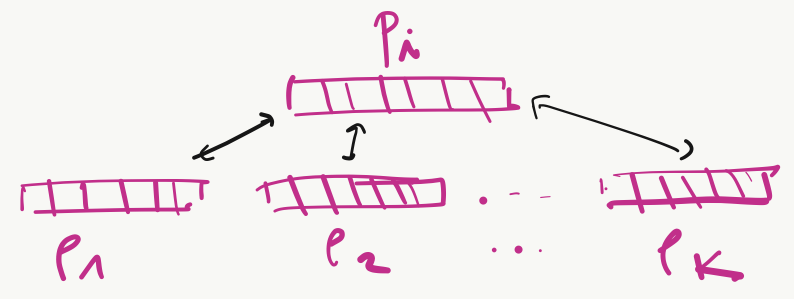 Pi
P1 P2 ... PK